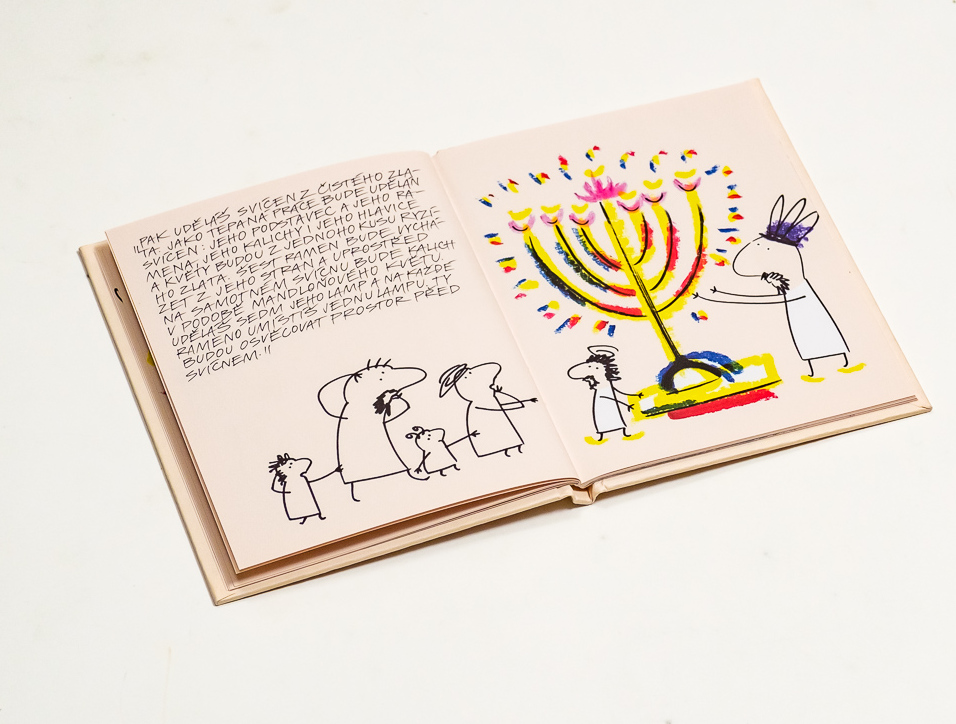 „PAK UDĚLÁŠ SVÍCEN Z ČISTÉHO ZLA-
TA: JAKO TEPANÁ PRÁCE BUDE UDĚLÁN
SVÍCEN: JEHO PODSTAVEC A JEHO RA-
MENA, JEHO KALICHY I JEHO HLAVICE
A KVĚTY BUDOU Z JEDNOHO KUSU RYZÍ-
HO ZLATA. ŠEST RAMEN BUDE VYCHÁ-
ZET Z JEHO STRAN A UPROSTŘED
NA SAMOTNÉM SVÍCNU BUDE KALICH
V PODOBĚ MANDLOŇOVÉHO KVĚTU.
UDĚLÁŠ SEDM JEHO LAMP A NA KAŽDÉ
RAMENO UMÍSTÍŠ JEDNU LAMPU, TY
BUDOU OSVĚCOVAT PROSTOR PŘED
SVÍCNEM."